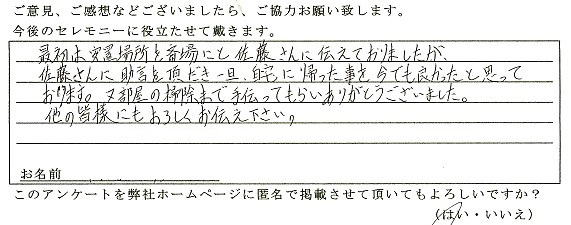 ご意見、ご感想などございましたら、ご協力お願い致します。
今後のセレモニーに役立たせて戴きます。
最初は安置場所を斎場にと佐藤さんに伝えておりましたが、
佐藤さんに助言を頂だき一旦、自宅に帰った事を今でも良かったと思って
おります。又部屋の掃除まで手伝ってもらいありがとうございました。
他の皆様にもよろしくお伝え下さい。
お名前
このアンケートを弊社ホームページに匿名で掲載させて頂いてもよろしいですか？
（はい・いいえ）